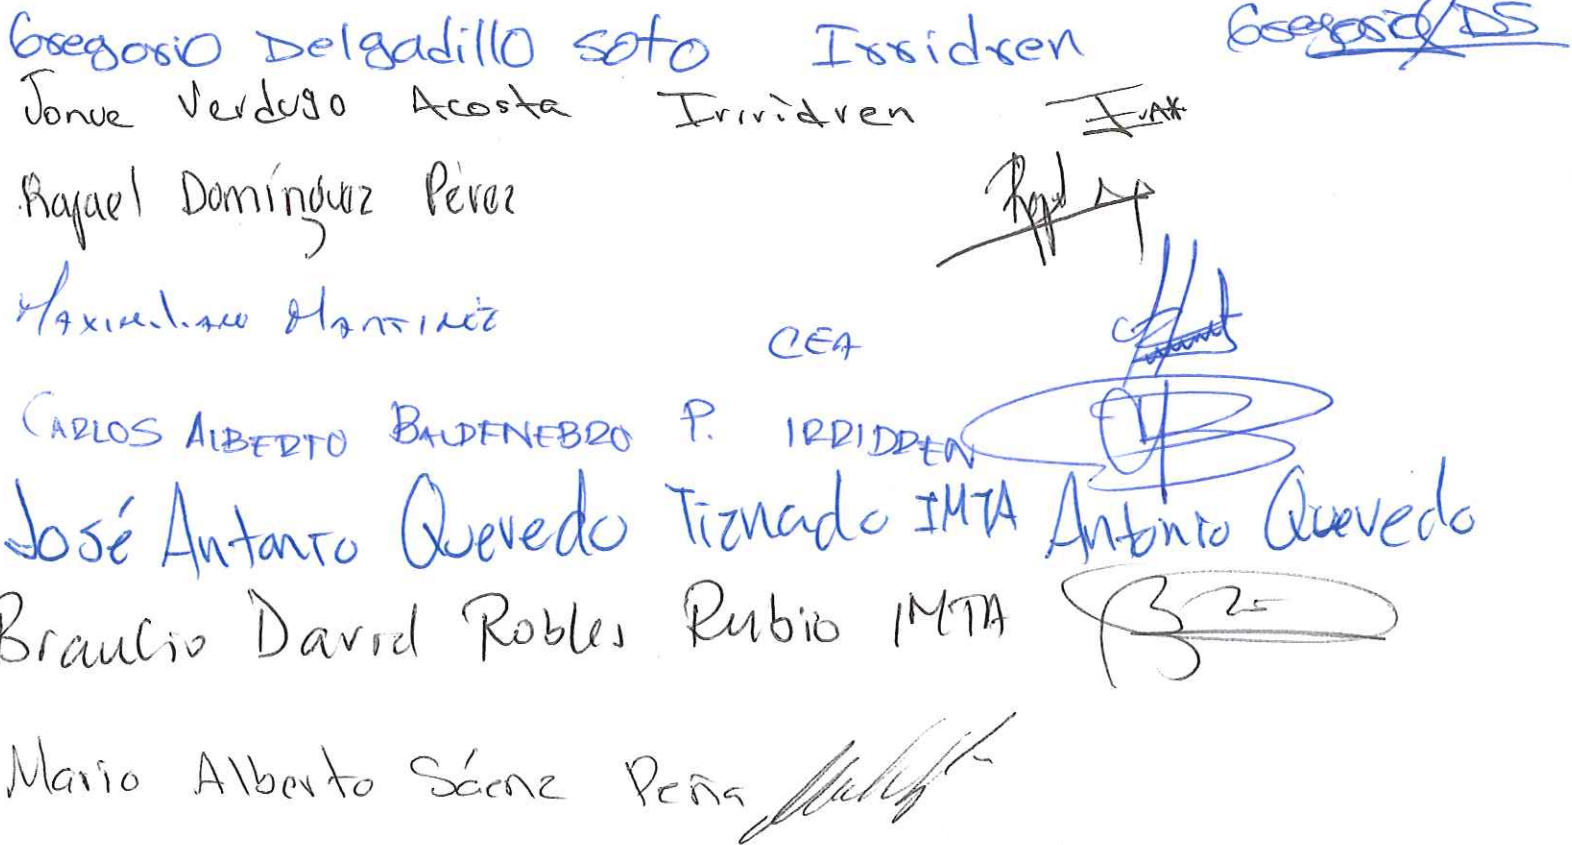 Gregorio Delgadillo soto Irridren Gregorio/DS
Verdugo Acosta Irrridren
Rafael Domínguez Pérez
Maximiliano Martinez
CEA
CARLOS ALBERTO BALDENEBRO P. IRRIDREN
José Antonio Quevedo Tiznado IMTA Antonio Quevedo
Braulio David Robles Rubio IMTA
Mario Alberto Sáenz Peña